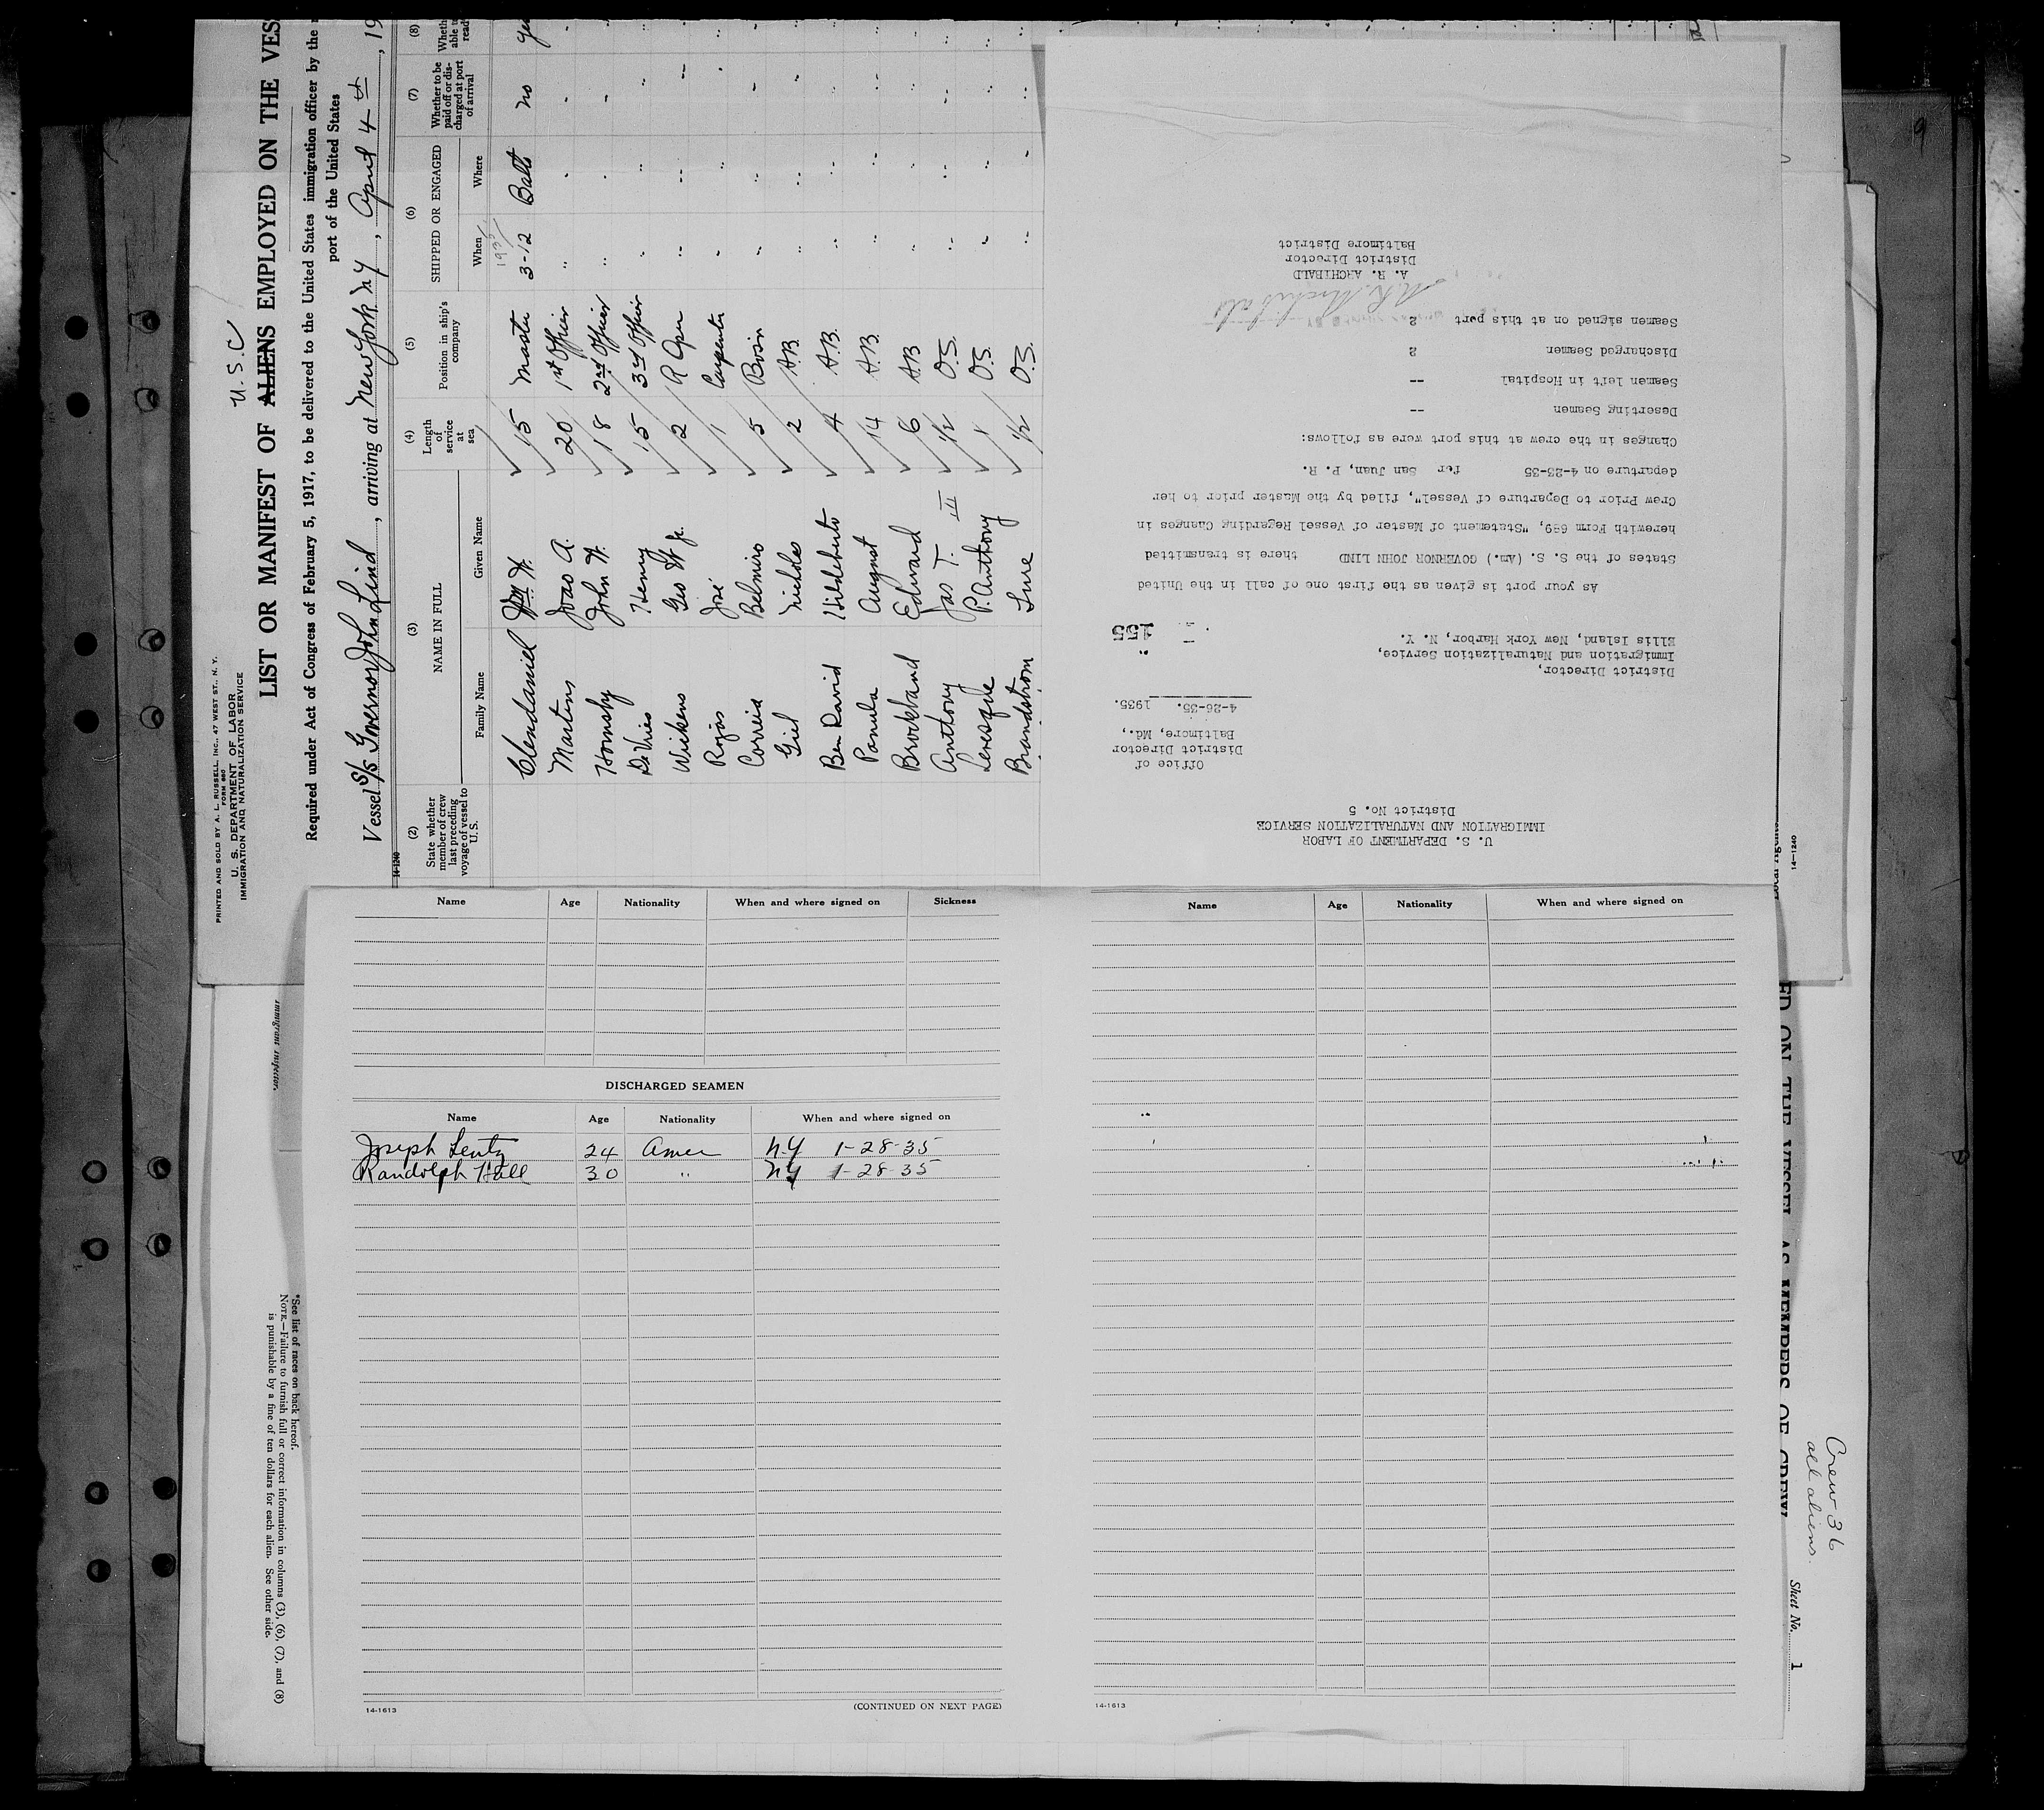 PRINTED AND SOLD BY A. L. RUSSELL, INC., 47 WEST ST., N. Y.
FORM 680
U. S. DEPARTMENT OF LABOR
IMMIGRATION AND NATURALIZATION SERVICE
U.S.C
LIST OR MANIFEST OF ALIENS EMPLOYED ON THE VES
Required under Act of Congress of February 5, 1917, to be delivered to the United States immigration officer by the
port of the United States
Vessel S/S Governor John Lind, arriving at New York NY, April 4th, 19
14-1240
(2) (3) (4) (5) (6) (7) (8)
State whether member of crew last preceding voyage of vessel to U. S.
NAME IN FULL
Family Name Given Name
Length of service at sea
Position in ship's company
SHIPPED OR ENGAGED
When Where
Whether to be paid off or discharged at port of arrival
1935
Clendaniel Wm H. 15 Master 3-12 Balt no
Martins Joao A. 20 1st Officer " " "
Hornsby John H. 18 2nd Officer " " "
De Vries Henry 15 3rd Officer " " "
Wickens Geo W Jr. 2 R Oper " " "
Rojas José 1 Carpenter " " "
Correia Belmiro 5 Bosn " " "
Giel 2 A.B. " " "
Ben David Hildeberto 4 A.B. " " "
Panula August 14 A.B. " " "
Brockband Edward 6 A.B " " "
Anthony Jas T. III 1/2 O.S. " " "
Levesque P. Anthony 1 O.S. " " "
Brandstrom Ture 1/2 O.S. " " "
U. S. DEPARTMENT OF LABOR
IMMIGRATION AND NATURALIZATION SERVICE
District No. 5
Office of
District Director
Baltimore, Md.,
4-26-35. 1935.
District Director,
Immigration and Naturalization Service,
Ellis Island, New York Harbor, N. Y.
155
As your port is given as the first one of call in the United
States of the S. S. (Am.) GOVERNOR JOHN LIND there is transmitted
herewith Form 689, "Statement of Master of Vessel Regarding Changes in
Crew Prior to Departure of Vessel", filed by the Master prior to her
departure on 4-23-35 for San Juan, P. R.
Changes in the crew at this port were as follows:
Deserting Seamen --
Seamen left in Hospital --
Discharged Seamen 2
Seamen signed on at this port 2
A. R. Archibald
A. R. ARCHIBALD
District Director
Baltimore District
Name Age Nationality When and where signed on Sickness
DISCHARGED SEAMEN
Name Age Nationality When and where signed on
Joseph Lentz 24 Amer NY 1-28-35
Randolph Hall 30 " NY 1-28-35
14-1613
(CONTINUED ON NEXT PAGE)
Name Age Nationality When and where signed on
14-1613
Immigrant Inspector.
*See list of races on back hereof.
NOTE.—Failure to furnish full or correct information in columns (3), (6), (7), and (8)
is punishable by a fine of ten dollars for each alien. See other side.
14-1240
ED ON THE VESSEL AS MEMBERS OF CREW
Crew 36
all aliens.
Sheet No. 1
9